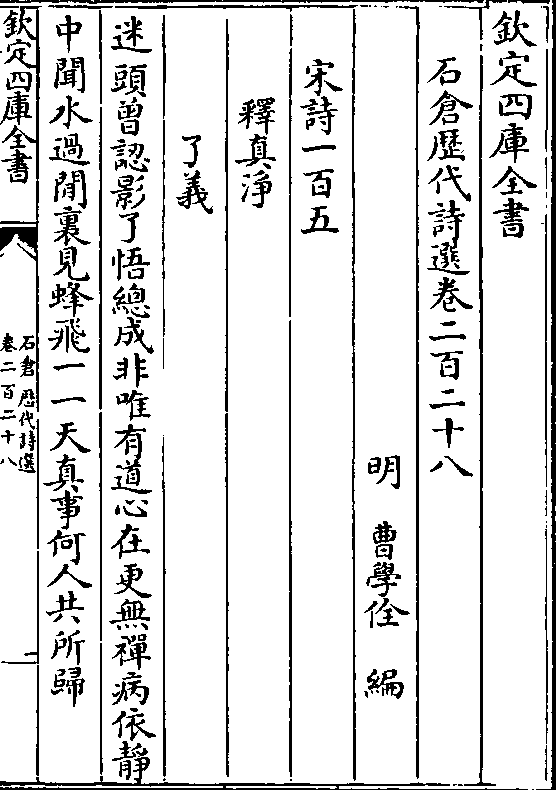 欽定四庫全書
石倉歷代詩選卷二百二十八
明 曹學佺 編
宋詩一百五
釋真淨
了義
迷頭曽認影了悟總成非唯有道心在更無禪病依靜
中聞水過閒裏見蜂飛一一天真事何人共所歸
欽定四庫全書
石倉歷代詩選
卷二百二十八
一